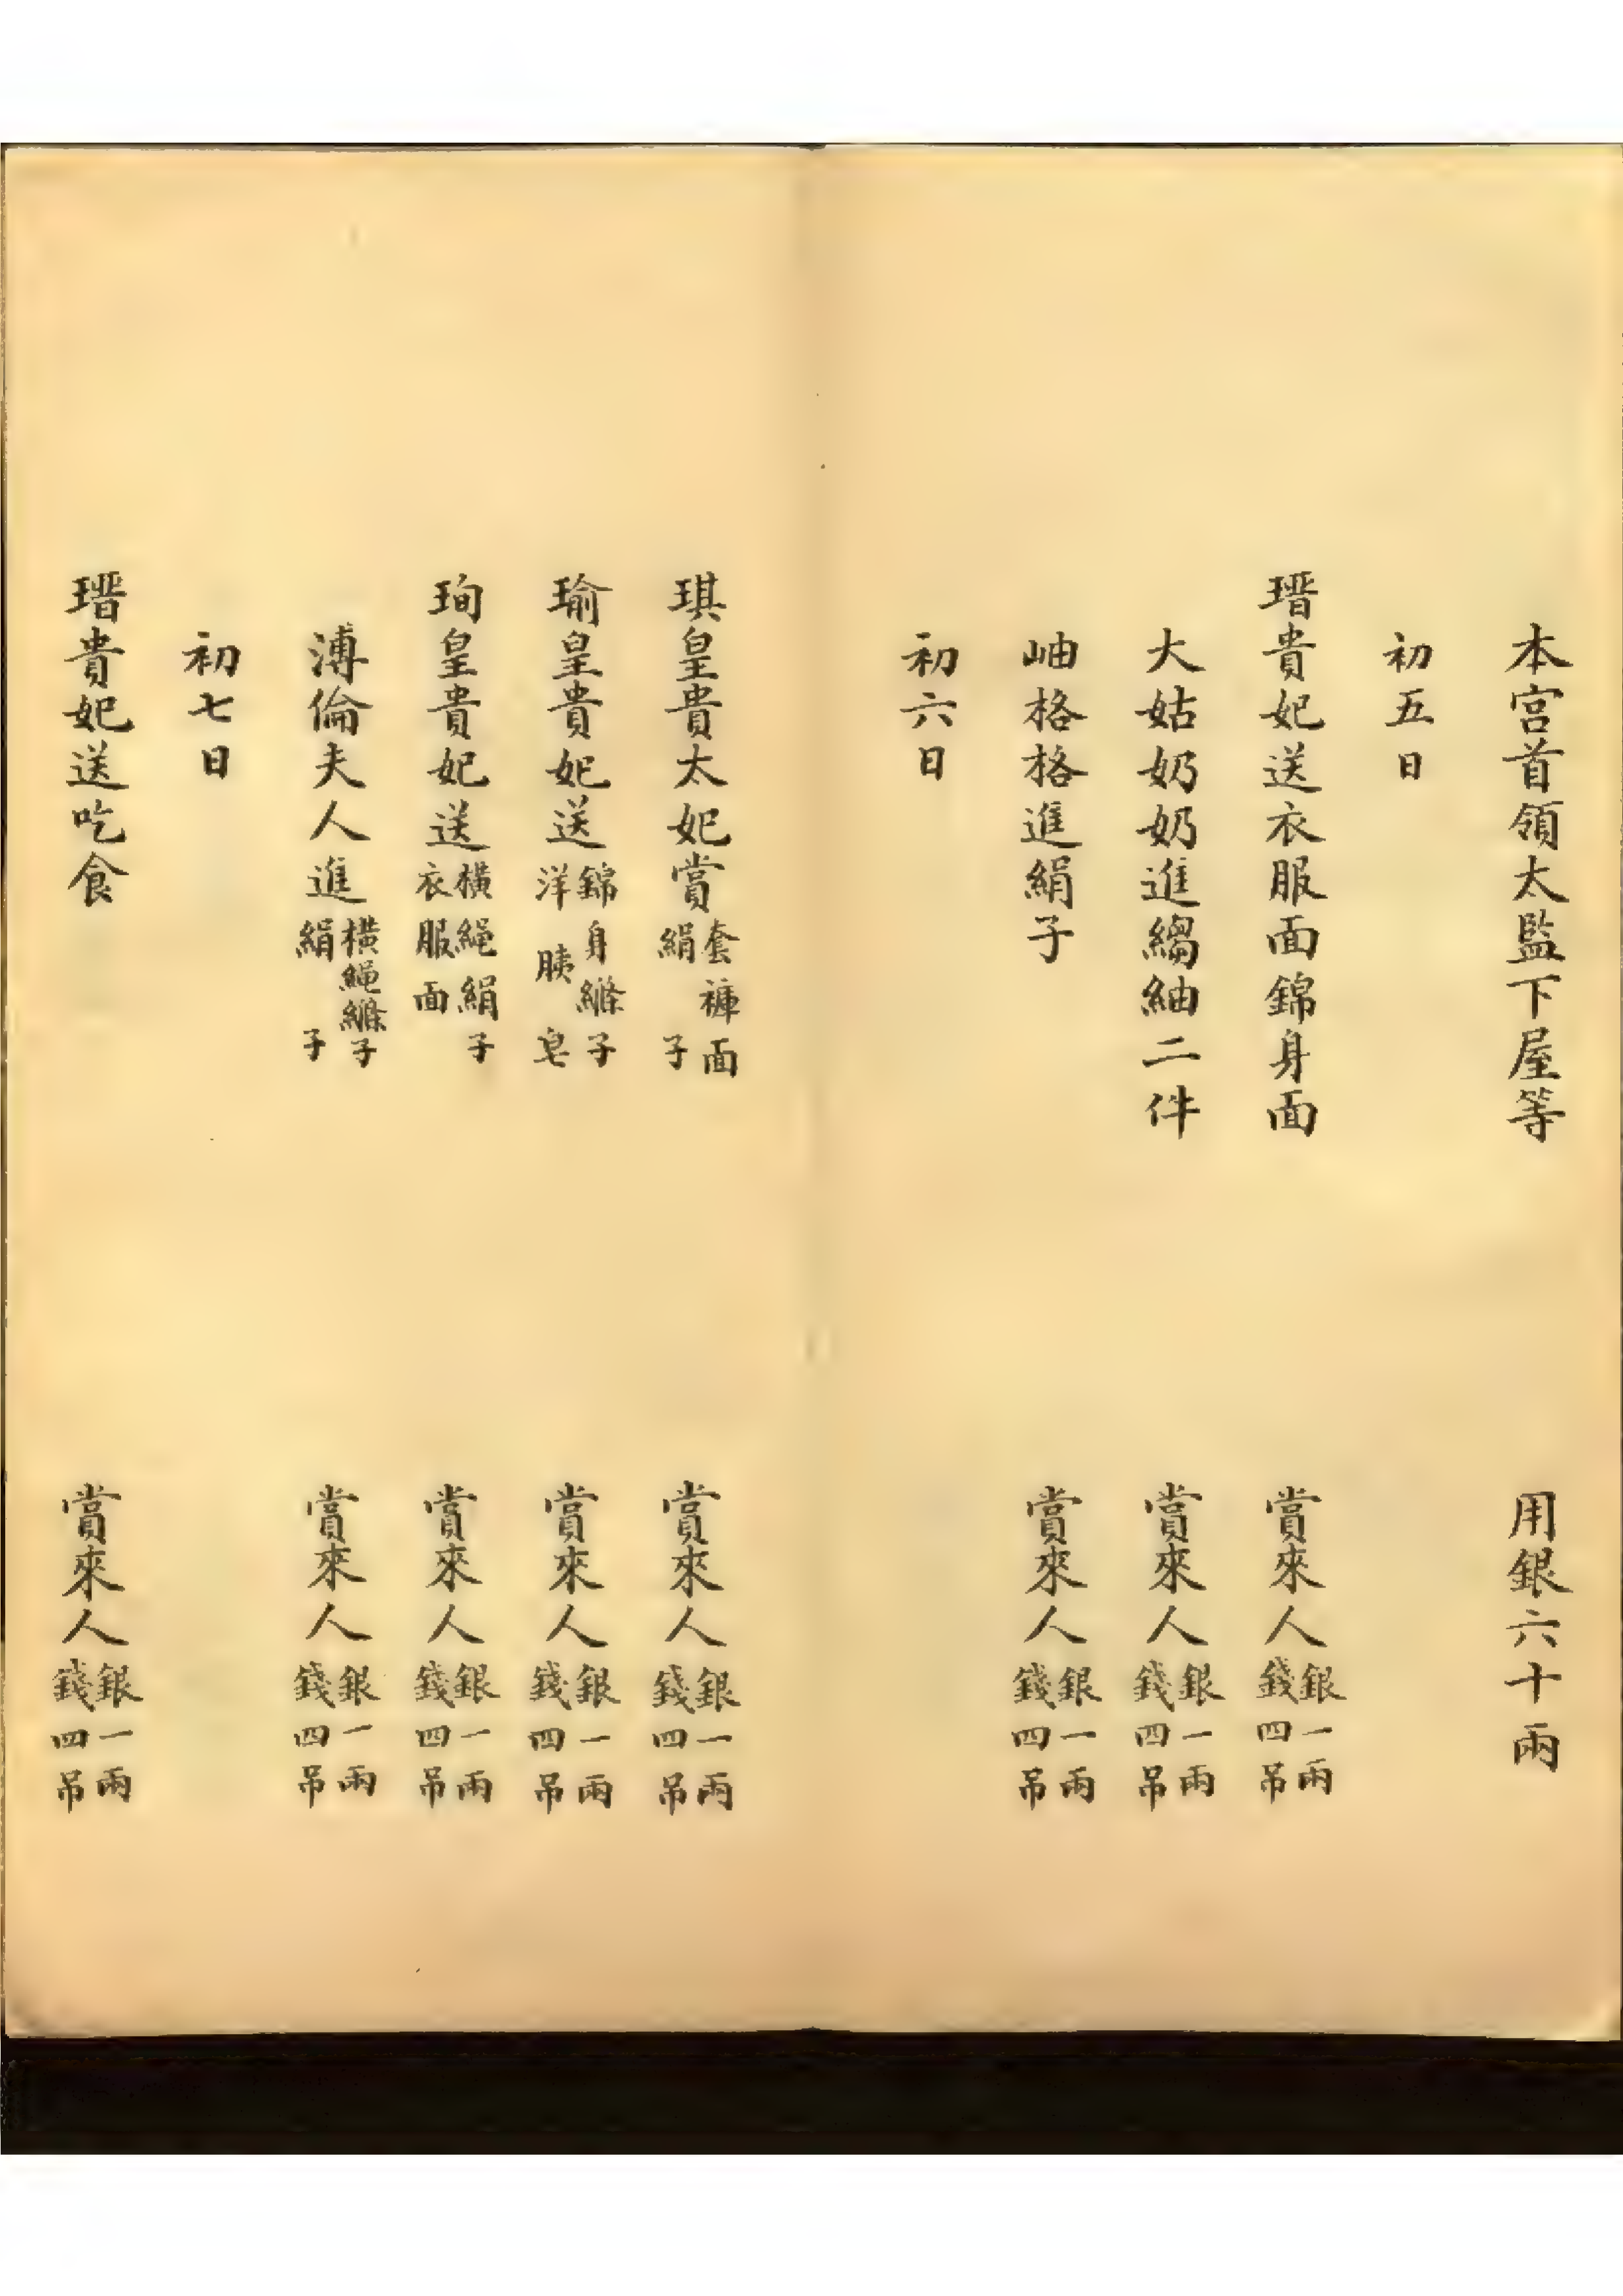 本宮首領太監下屋等 用銀六十兩
初五日
瑨貴妃送衣服面錦身面 賞來人銀一兩錢四吊
大姑奶奶進縐紬二件 賞來人銀一兩錢四吊
岫格格進絹子 賞來人銀一兩錢四吊
初六日
琪皇貴太妃賞套褲面絹子 賞來人銀一兩錢四吊
瑜皇貴妃送錦身縧子洋胰皂 賞來人銀一兩錢四吊
珣皇貴妃送橫繩絹子衣服面 賞來人銀一兩錢四吊
溥倫夫人進橫繩縧子絹子 賞來人銀一兩錢四吊
初七日
瑨貴妃送吃食 賞來人銀一兩錢四吊